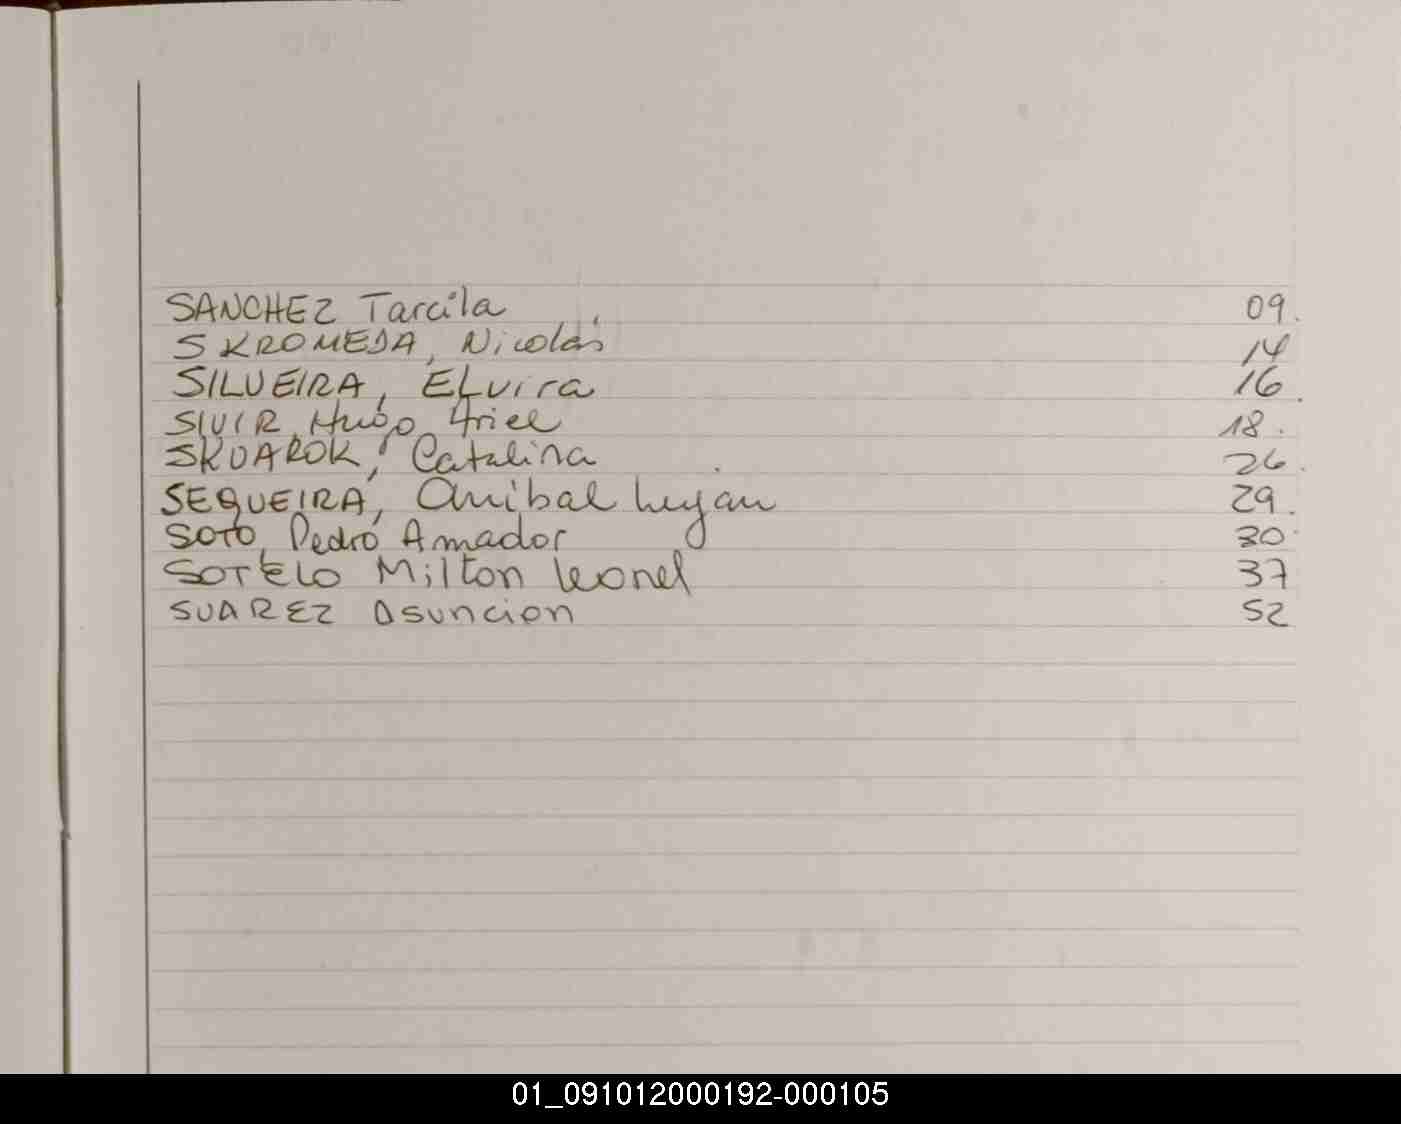 SANCHEZ Tarcila 09.
SKROMEDA, Nicolás 14
SILVEIRA, ELvira 16.
SIVIR, Hugo Ariel 18.
SKUAROK, Catalina 26.
SEQUEIRA, Anibal Lujan 29.
SOTO, Pedro Amador 30.
SOTELO Milton Leonel 37
SUAREZ Asuncion 52
01_091012000192-000105